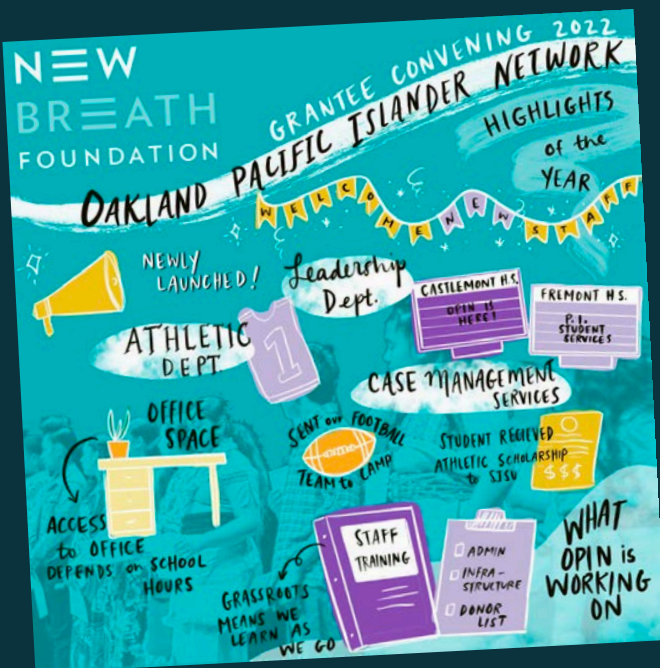 NEW
BREATH
FOUNDATION
GRANTEE CONVENING 2022
OAKLAND PACIFIC ISLANDER NETWORK
HIGHLIGHTS
of the
YEAR
WELCOME NEW STAFF
NEWLY
LAUNCHED!
Leadership
Dept.
ATHLETIC
DEPT
1
CASTLEMONT H.S.
OPIN IS
HERE!
FREMONT H.S.
P.I.
STUDENT
SERVICES
CASE MANAGEMENT
SERVICES
OFFICE
SPACE
SENT our FOOTBALL
TEAM to CAMP
STUDENT RECIEVED
ATHLETIC SCHOLARSHIP
to SJSU
$$$
ACCESS
to OFFICE
DEPENDS on SCHOOL
HOURS
STAFF
TRAINING
GRASSROOTS
MEANS WE
LEARN AS
WE GO
ADMIN
INFRA-
STRUCTURE
DONOR
LIST
WHAT
OPIN is
WORKING
ON